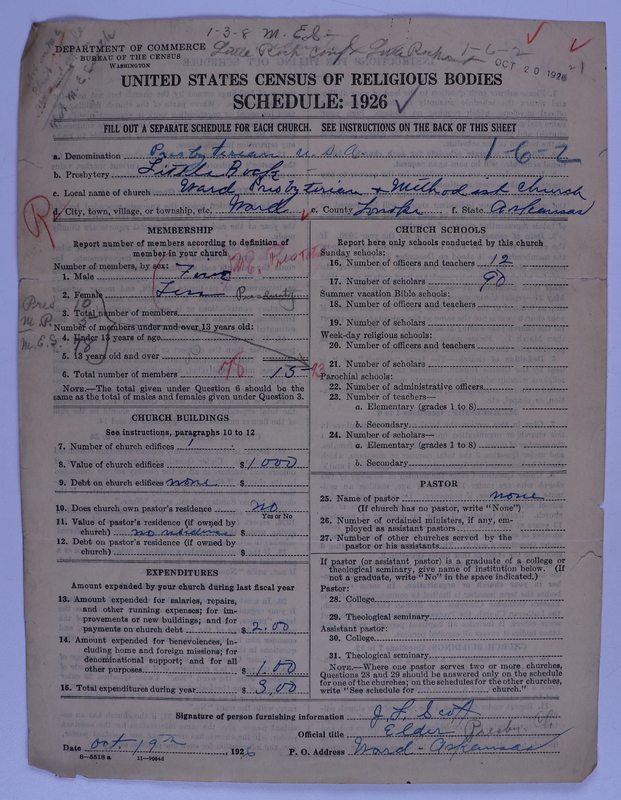 1-3-8 M.E.S.
Little Rock Conf
1-6-2
OCT 20 1926
DEPARTMENT OF COMMERCE
BUREAU OF THE CENSUS
WASHINGTON
UNITED STATES CENSUS OF RELIGIOUS BODIES
SCHEDULE: 1926
FILL OUT A SEPARATE SCHEDULE FOR EACH CHURCH. SEE INSTRUCTIONS ON THE BACK OF THIS SHEET
a. Denomination Presbyterian U.S.A. 1-6-2
b. Presbytery Little Rock
c. Local name of church Ward Presbyterian & Methodist Church
d. City, town, village, or township, etc. Ward e. County Lonoke f. State Arkansas
R
MEMBERSHIP
Report number of members according to definition of
member in your church
Number of members, by sex:
1. Male Five
2. Female Ten
3. Total number of members
Pres 10
M.P. 5
M.E.S. 18
Number of members under and over 13 years old:
4. Under 13 years of age
5. 13 years old and over
6. Total number of members 15
NOTE.—The total given under Question 6 should be
the same as the total of males and females given under Question 3.
CHURCH BUILDINGS
See instructions, paragraphs 10 to 12
7. Number of church edifices 1
8. Value of church edifices $1000
9. Debt on church edifices none $
10. Does church own pastor's residence no
Yes or No
11. Value of pastor's residence (if owned by
church) no residence $
12. Debt on pastor's residence (if owned by
church) $
EXPENDITURES
Amount expended by your church during last fiscal year
13. Amount expended for salaries, repairs,
and other running expenses; for im-
provements or new buildings; and for
payments on church debt $2.00
14. Amount expended for benevolences, in-
cluding home and foreign missions; for
denominational support; and for all
other purposes $1.00
15. Total expenditures during year $3.00
CHURCH SCHOOLS
Report here only schools conducted by this church
Sunday schools:
16. Number of officers and teachers 12
17. Number of scholars 90
Summer vacation Bible schools:
18. Number of officers and teachers
19. Number of scholars
Week-day religious schools:
20. Number of officers and teachers
21. Number of scholars
Parochial schools:
22. Number of administrative officers
23. Number of teachers—
a. Elementary (grades 1 to 8)
b. Secondary
24. Number of scholars—
a. Elementary (grades 1 to 8)
b. Secondary
PASTOR
25. Name of pastor none
(If church has no pastor, write "None")
26. Number of ordained ministers, if any, em-
ployed as assistant pastors
27. Number of other churches served by the
pastor or his assistants
If pastor (or assistant pastor) is a graduate of a college or
theological seminary, give name of institution below. (If
not a graduate, write "No" in the space indicated.)
Pastor:
28. College
29. Theological seminary
Assistant pastor:
30. College
31. Theological seminary
NOTE.—Where one pastor serves two or more churches,
Questions 28 and 29 should be answered only on the schedule
for one of the churches; on the schedules for the other churches,
write "See schedule for church."
Signature of person furnishing information J. L. Scott
Official title Elder Presby
Date Oct. 19th, 1926 P. O. Address Ward - Arkansas
8-5518 a 11-9084d